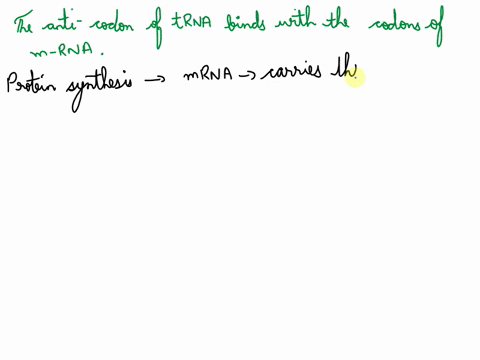 The anti-codon of tRNA binds with the codons of
m-RNA.
Protein synthesis → mRNA → carries th